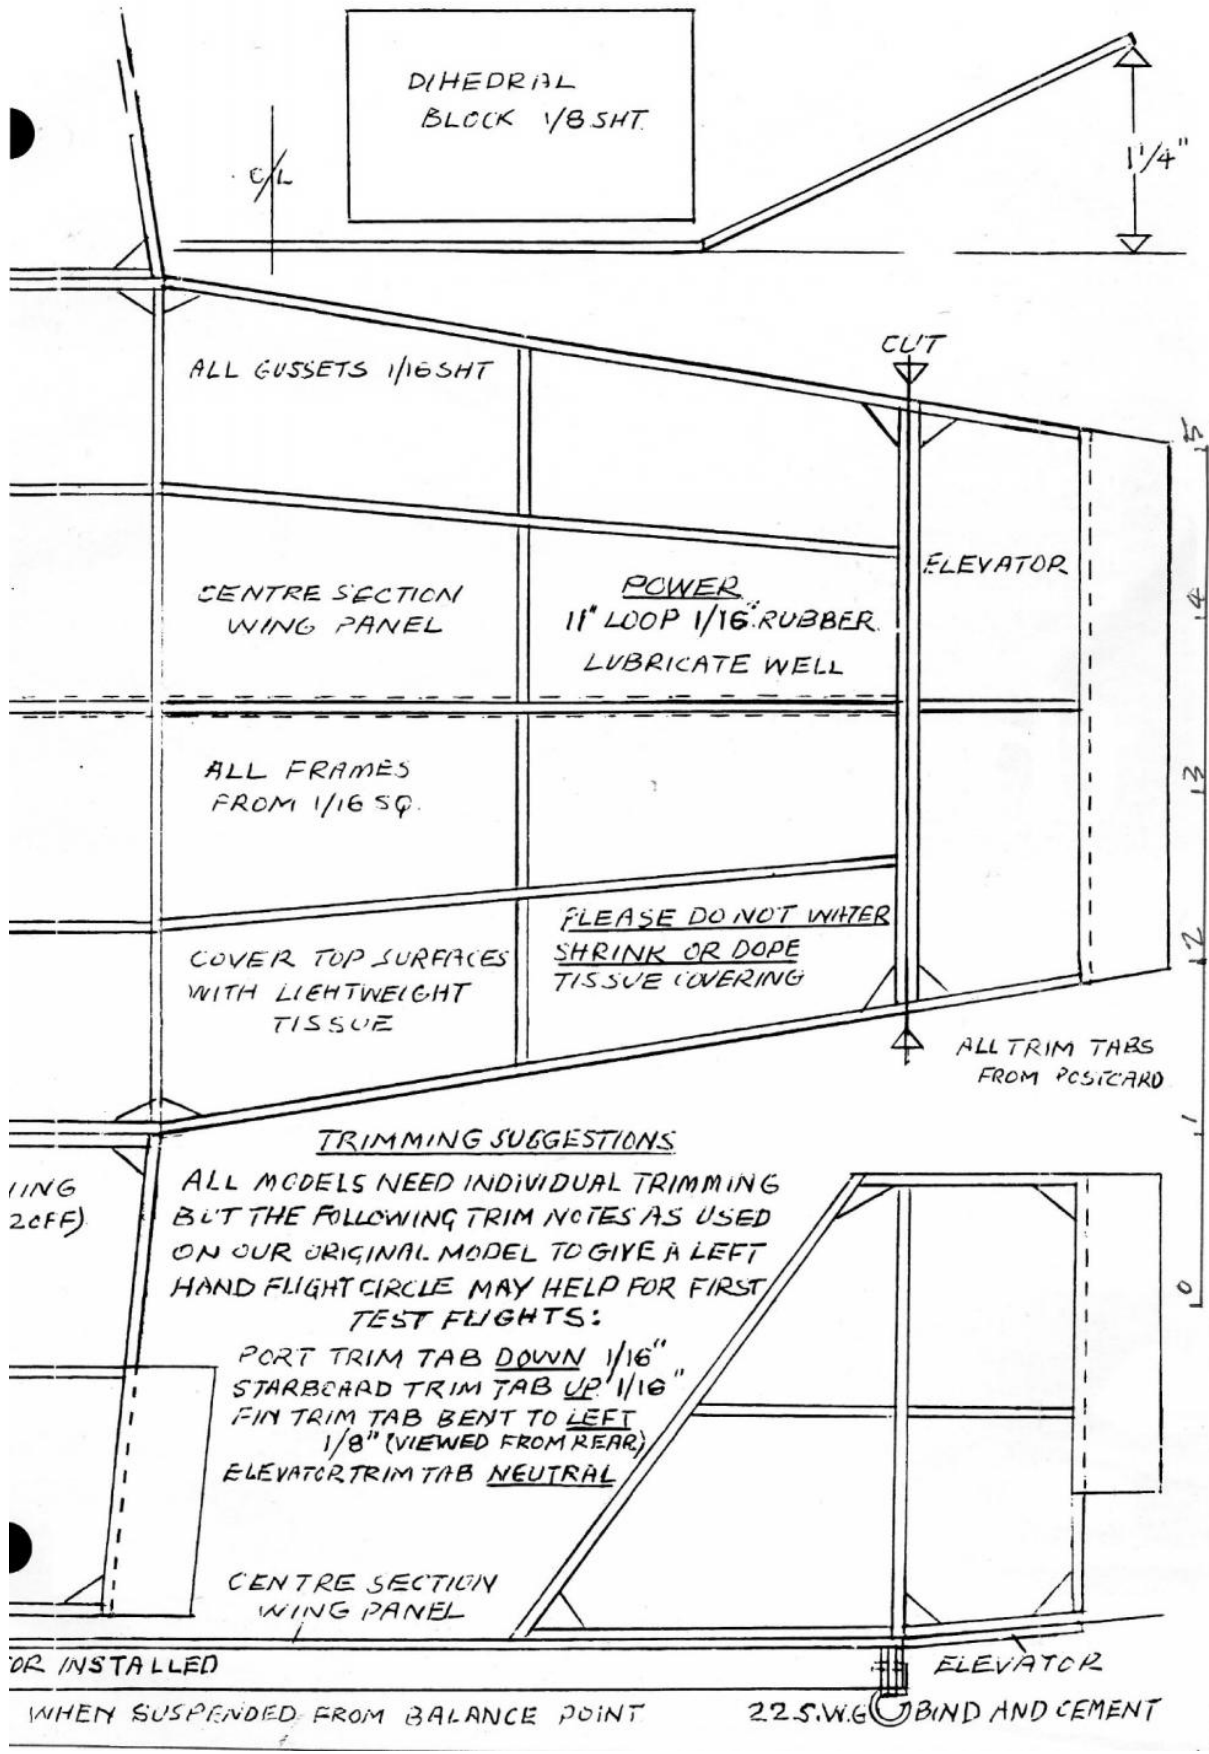 DIHEDRAL
BLOCK 1/8 SHT.
C/L
1 1/4"
CUT
ALL GUSSETS 1/16 SHT
5
ELEVATOR
CENTRE SECTION
WING PANEL
POWER
11" LOOP 1/16" RUBBER.
LUBRICATE WELL
4
ALL FRAMES
FROM 1/16 SQ.
3
PLEASE DO NOT WATER
SHRINK OR DOPE
TISSUE COVERING
COVER TOP SURFACES
WITH LIGHTWEIGHT
TISSUE
2
ALL TRIM TABS
FROM POSTCARD
1
TRIMMING SUGGESTIONS
ALL MODELS NEED INDIVIDUAL TRIMMING
BUT THE FOLLOWING TRIM NOTES AS USED
ON OUR ORIGINAL MODEL TO GIVE A LEFT
HAND FLIGHT CIRCLE MAY HELP FOR FIRST
TEST FLIGHTS:
PORT TRIM TAB DOWN 1/16"
STARBOARD TRIM TAB UP 1/16"
FIN TRIM TAB BENT TO LEFT
1/8" (VIEWED FROM REAR)
ELEVATOR TRIM TAB NEUTRAL
ING
2 OFF)
0
CENTRE SECTION
WING PANEL
OR INSTALLED
ELEVATOR
WHEN SUSPENDED FROM BALANCE POINT
22 S.W.G BIND AND CEMENT